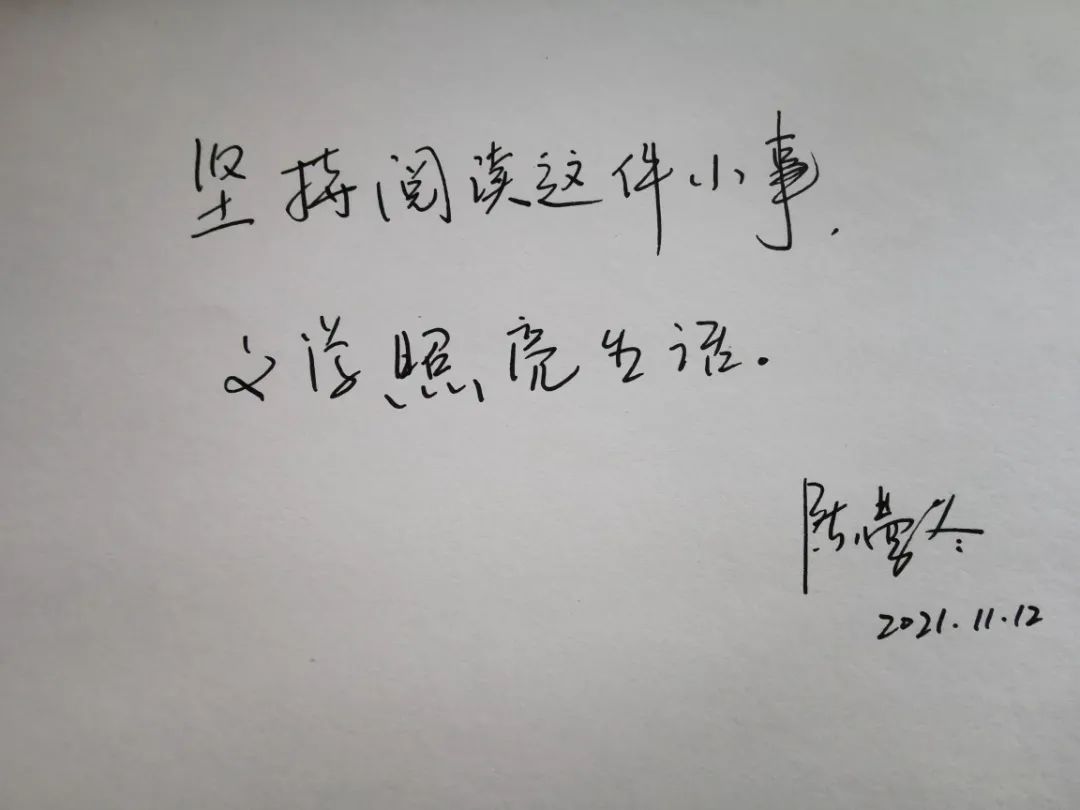 坚持阅读这件小事,
文学照亮生活.
陈
2021.11.12